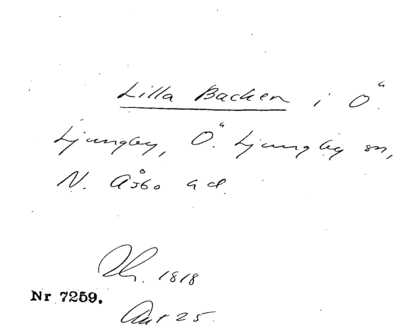 Lilla Backen i Ö.
Ljungby, Ö. Ljungby sn,
N. Åsbo hd.
1818
Nr 7259.
25